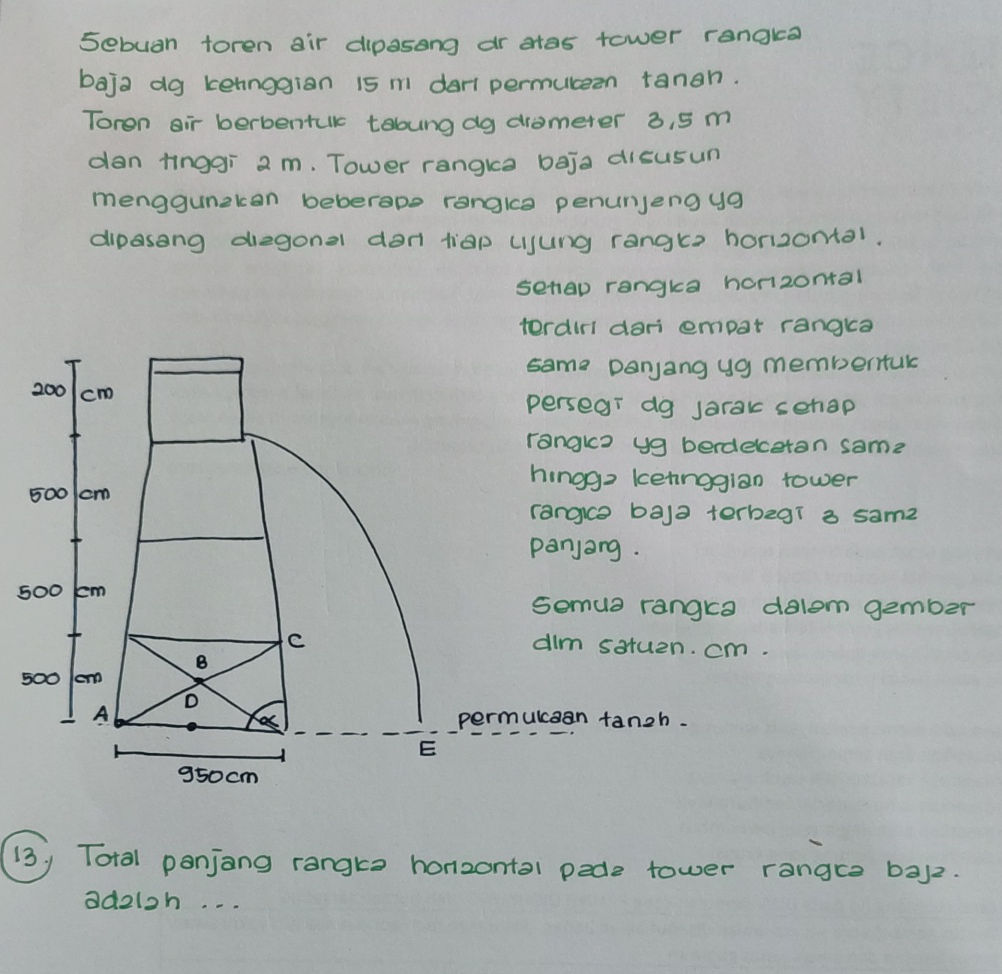 Sebuan toren air dipasang di atas tower rangka
baja dg ketinggian 15 m dari permukaan tanah.
Toren air berbentuk tabung dg diameter 3,5 m
dan tinggi 2 m. Tower rangka baja disusun
menggunakan beberapa rangka penunjang yg
dipasang diagonal dari tiap ujung rangka horizontal.
setiap rangka horizontal
terdiri dari empat rangka
sama panjang yg membentuk
persegi dg jarak setiap
rangka yg berdekatan sama
hingga ketinggian tower
rangka baja terbagi 3 sama
panjang.
Semua rangka dalam gambar
dlm satuan. cm.
200 cm
500 cm
500 cm
500 cm
C
B
D
A
α
permukaan tanah.
E
950 cm
13. Total panjang rangka horizontal pada tower rangka baja.
adalah ...